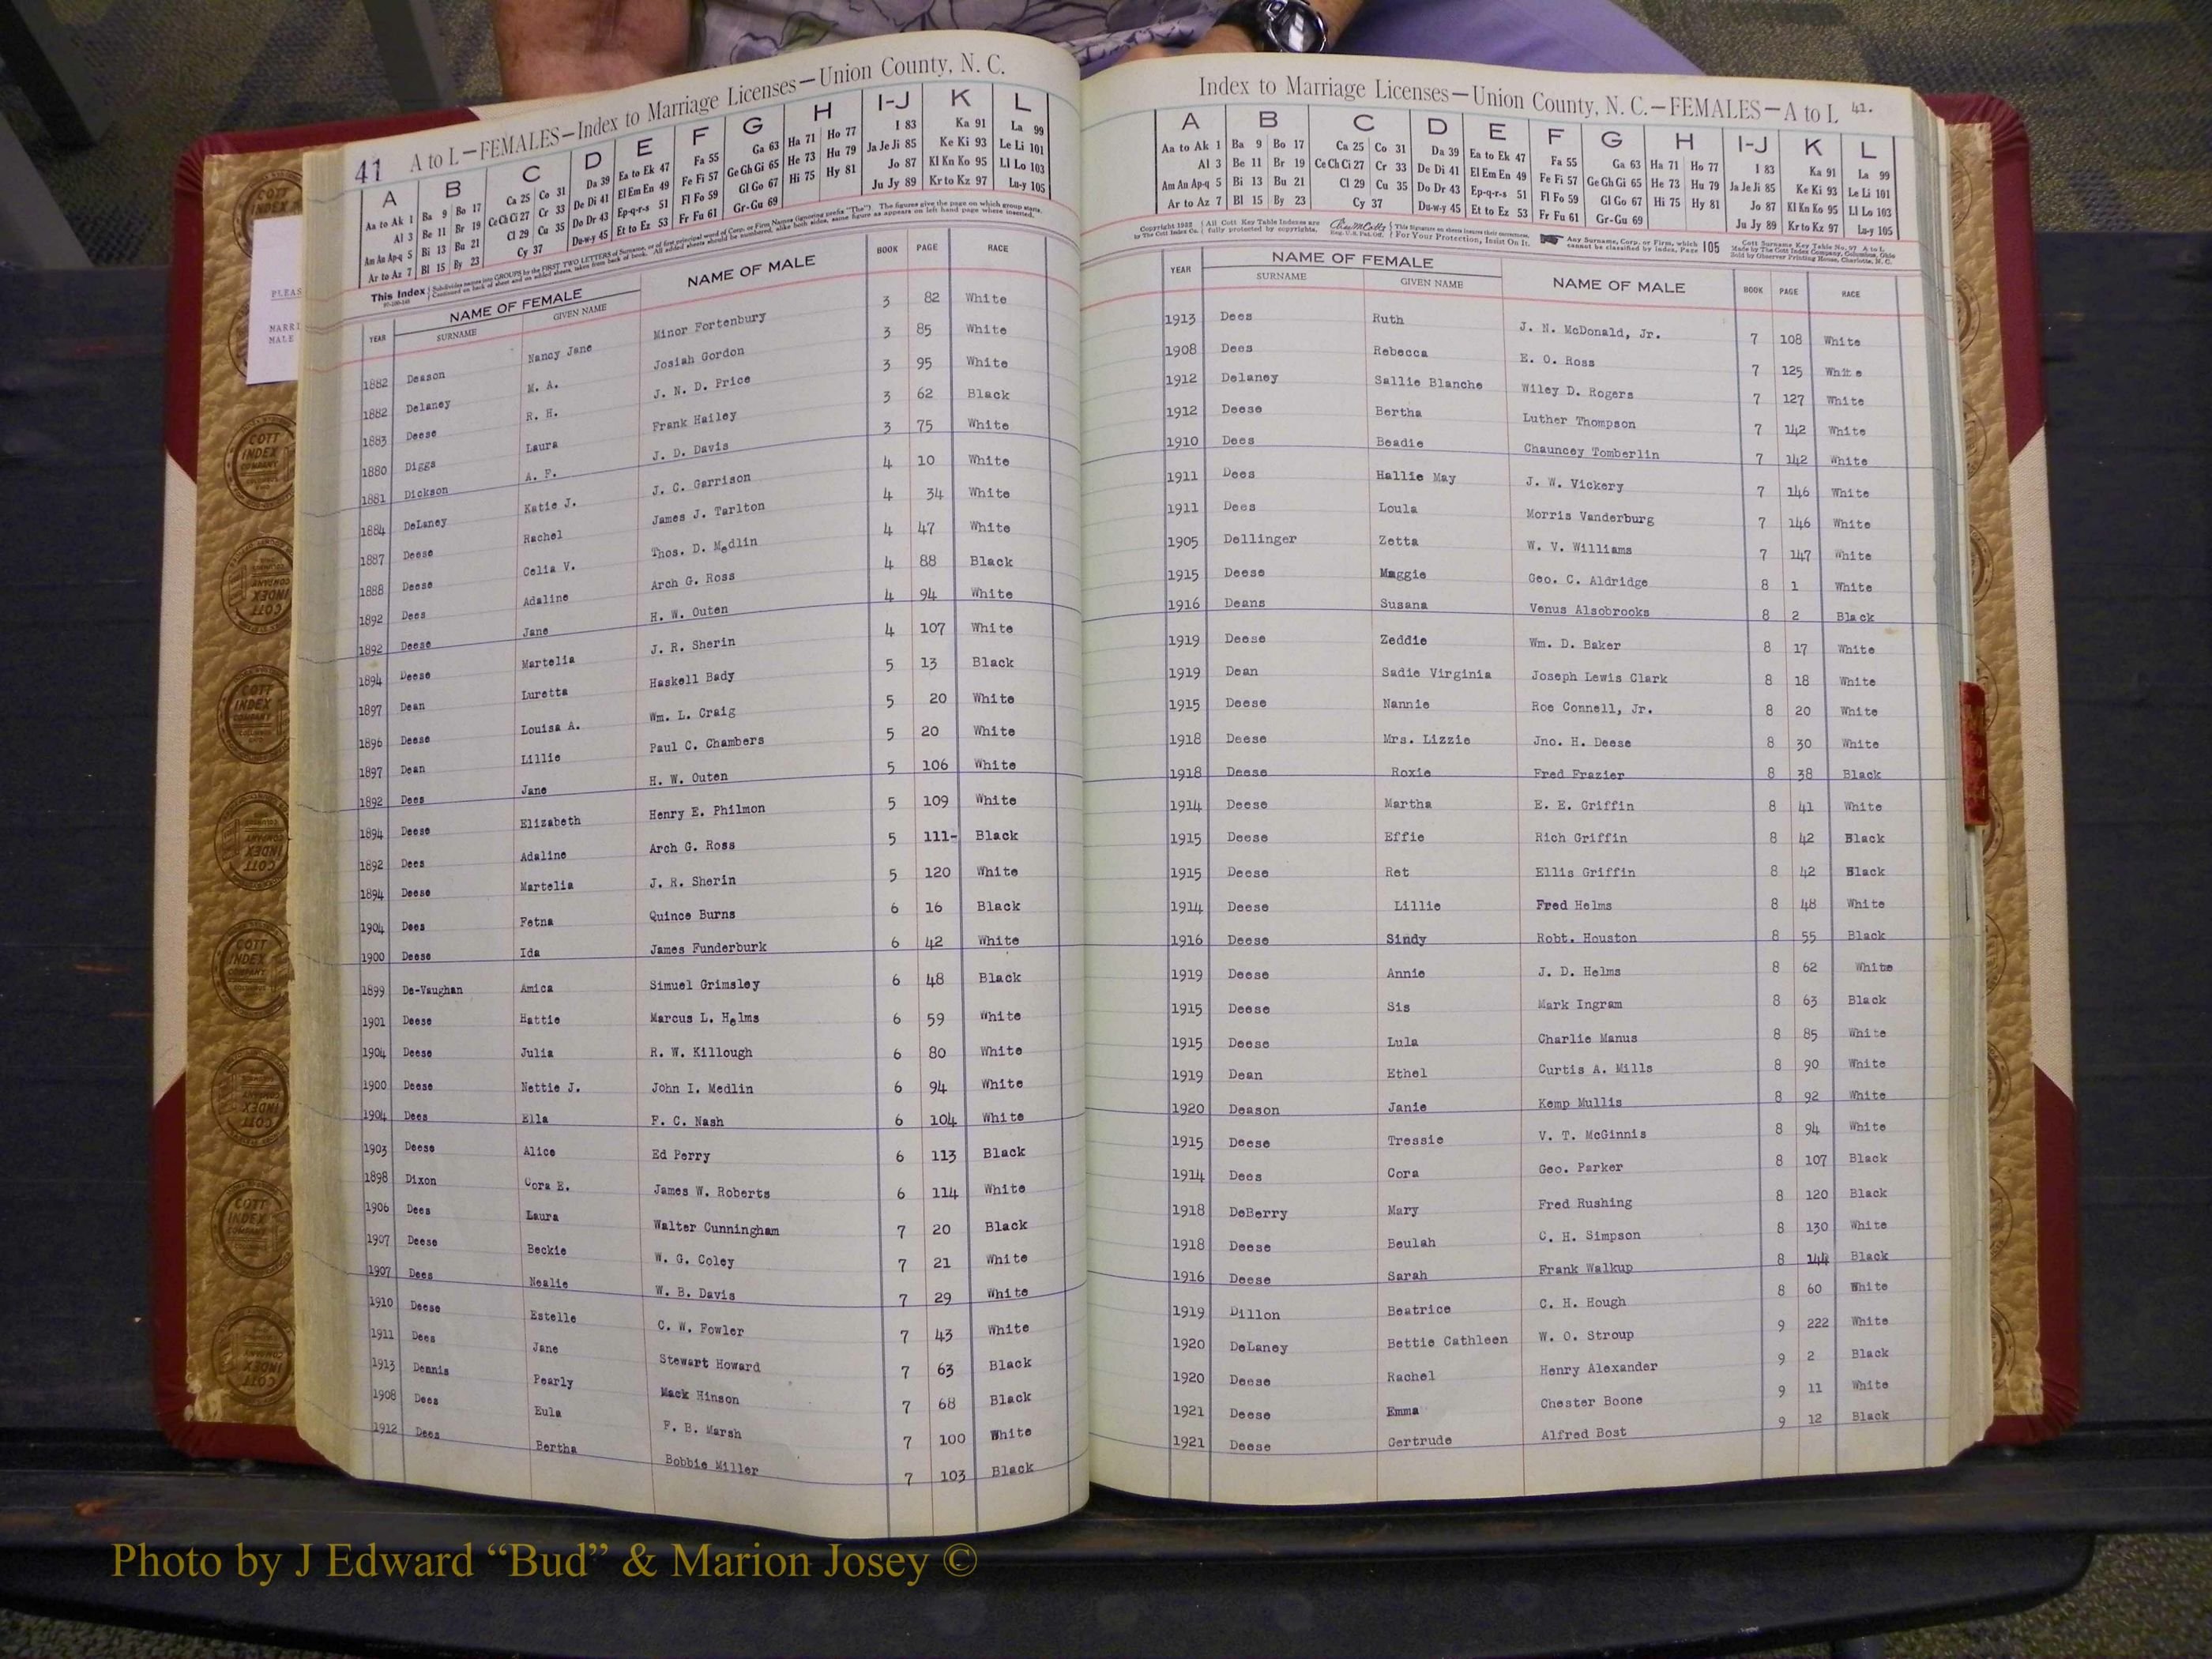 41 A to L—FEMALES—Index to Marriage Licenses—Union County, N. C.
A B C D E F G H I-J K L
Aa to Ak 1 Ba 9 Bo 17 Ca 25 Co 31 Da 39 Ea to Ek 47 Fa 55 Ga 63 Ha 71 Ho 77 I 83 Ka 91 La 99
Al 3 Be 11 Br 19 Ce Ch Ci 27 Cr 33 De Di 41 El Em En 49 Fe Fi 57 Ge Gh Gi 65 He 73 Hu 79 Ja Je Ji 85 Ke Ki 93 Le Li 101
Am An Ap-q 5 Bi 13 Bu 21 Cl 29 Cu 35 Do Dr 43 Ep-q-r-s 51 Fl Fo 59 Gl Go 67 Hi 75 Hy 81 Jo 87 Kl Kn Ko 95 Ll Lo 103
Ar to Az 7 Bl 15 By 23 Cy 37 Du-w-y 45 Et to Ez 53 Fr Fu 61 Gr-Gu 69 Ju Jy 89 Kr to Kz 97 Lu-y 105
This Index
YEAR NAME OF FEMALE NAME OF MALE BOOK PAGE RACE
SURNAME GIVEN NAME
1882 Deason Nancy Jane Minor Fortenbury 3 82 White
1882 Delaney M. A. Josiah Gordon 3 85 White
1883 Deese R. H. J. N. D. Price 3 95 White
1880 Diggs Laura Frank Hailey 3 62 Black
1881 Dickson A. F. J. D. Davis 3 75 White
1884 DeLaney Katie J. J. C. Garrison 4 10 White
1887 Deese Rachel James J. Tarlton 4 34 White
1888 Deese Celia V. Thos. D. Medlin 4 47 White
1892 Dees Adaline Arch G. Ross 4 88 Black
1892 Deese Jane H. W. Outen 4 94 White
1894 Deese Martelia J. R. Sherin 4 107 White
1897 Dean Luretta Haskell Bady 5 13 Black
1896 Deese Louisa A. Wm. L. Craig 5 20 White
1897 Dean Lillie Paul C. Chambers 5 20 White
1892 Dees Jane H. W. Outen 5 106 White
1894 Deese Elizabeth Henry E. Philmon 5 109 White
1892 Dees Adaline Arch G. Ross 5 111- Black
1894 Deese Martelia J. R. Sherin 5 120 White
1904 Dees Fetna Quince Burns 6 16 Black
1900 Deese Ida James Funderburk 6 42 White
1899 De-Vaughan Amica Simuel Grimsley 6 48 Black
1901 Deese Hattie Marcus L. Helms 6 59 White
1904 Deese Julia R. W. Killough 6 80 White
1900 Deese Nettie J. John I. Medlin 6 94 White
1904 Dees Ella F. C. Nash 6 104 White
1903 Deese Alice Ed Perry 6 113 Black
1898 Dixon Cora E. James W. Roberts 6 114 White
1906 Dees Laura Walter Cunningham 7 20 Black
1907 Deese Beckie W. G. Coley 7 21 White
1907 Dees Nealie W. B. Davis 7 29 White
1910 Deese Estelle C. W. Fowler 7 43 White
1911 Dees Jane Stewart Howard 7 63 Black
1913 Dennis Pearly Mack Hinson 7 68 Black
1908 Dees Eula F. B. Marsh 7 100 White
1912 Dees Bertha Bobbie Miller 7 103 Black
Index to Marriage Licenses—Union County, N. C.—FEMALES—A to L 41.
A B C D E F G H I-J K L
Aa to Ak 1 Ba 9 Bo 17 Ca 25 Co 31 Da 39 Ea to Ek 47 Fa 55 Ga 63 Ha 71 Ho 77 I 83 Ka 91 La 99
Al 3 Be 11 Br 19 Ce Ch Ci 27 Cr 33 De Di 41 El Em En 49 Fe Fi 57 Ge Gh Gi 65 He 73 Hu 79 Ja Je Ji 85 Ke Ki 93 Le Li 101
Am An Ap-q 5 Bi 13 Bu 21 Cl 29 Cu 35 Do Dr 43 Ep-q-r-s 51 Fl Fo 59 Gl Go 67 Hi 75 Hy 81 Jo 87 Kl Kn Ko 95 Ll Lo 103
Ar to Az 7 Bl 15 By 23 Cy 37 Du-w-y 45 Et to Ez 53 Fr Fu 61 Gr-Gu 69 Ju Jy 89 Kr to Kz 97 Lu-y 105
YEAR NAME OF FEMALE NAME OF MALE BOOK PAGE RACE
SURNAME GIVEN NAME
1913 Dees Ruth J. N. McDonald, Jr. 7 108 White
1908 Dees Rebecca E. O. Ross 7 125 White
1912 Delaney Sallie Blanche Wiley D. Rogers 7 127 White
1912 Deese Bertha Luther Thompson 7 142 White
1910 Dees Beadie Chauncey Tomberlin 7 142 White
1911 Dees Hallie May J. W. Vickery 7 146 White
1911 Dees Loula Morris Vanderburg 7 146 White
1905 Dellinger Zetta W. V. Williams 7 147 White
1915 Deese Maggie Geo. C. Aldridge 8 1 White
1916 Deans Susana Venus Alsobrooks 8 2 Black
1919 Deese Zeddie Wm. D. Baker 8 17 White
1919 Dean Sadie Virginia Joseph Lewis Clark 8 18 White
1915 Deese Nannie Roe Connell, Jr. 8 20 White
1918 Deese Mrs. Lizzie Jno. H. Deese 8 30 White
1918 Deese Roxie Fred Frazier 8 38 Black
1914 Deese Martha E. E. Griffin 8 41 White
1915 Deese Effie Rich Griffin 8 42 Black
1915 Deese Ret Ellis Griffin 8 42 Black
1914 Deese Lillie Fred Helms 8 48 White
1916 Deese Sindy Robt. Houston 8 55 Black
1919 Deese Annie J. D. Helms 8 62 White
1915 Deese Sis Mark Ingram 8 63 Black
1915 Deese Lula Charlie Manus 8 85 White
1919 Dean Ethel Curtis A. Mills 8 90 White
1920 Deason Janie Kemp Mullis 8 92 White
1915 Deese Tressie V. T. McGinnis 8 94 White
1914 Dees Cora Geo. Parker 8 107 Black
1918 DeBerry Mary Fred Rushing 8 120 Black
1918 Deese Beulah C. H. Simpson 8 130 White
1916 Deese Sarah Frank Walkup 8 144 Black
1919 Dillon Beatrice C. H. Hough 8 60 White
1920 DeLaney Bettie Cathleen W. O. Stroup 9 222 White
1920 Deese Rachel Henry Alexander 9 2 Black
1921 Deese Emma Chester Boone 9 11 White
1921 Deese Gertrude Alfred Bost 9 12 Black
Photo by J Edward “Bud” & Marion Josey ©